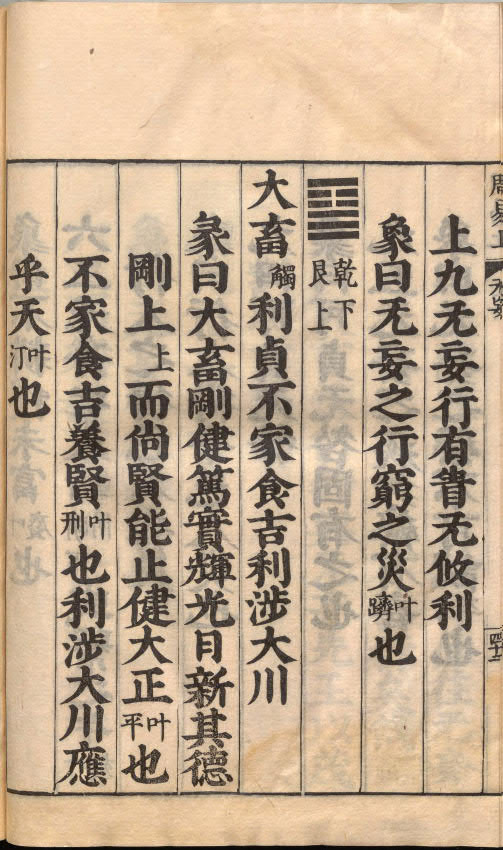 周易上
上九无妄行有眚无攸利
象曰无妄之行窮之災叶躋也
䷙乾下艮上
大畜觸利貞不家食吉利涉大川
彖曰大畜剛健篤實輝光日新其德
剛上上而尙賢能止健大正叶平也
不家食吉養賢叶刑也利涉大川應
乎天叶汀也